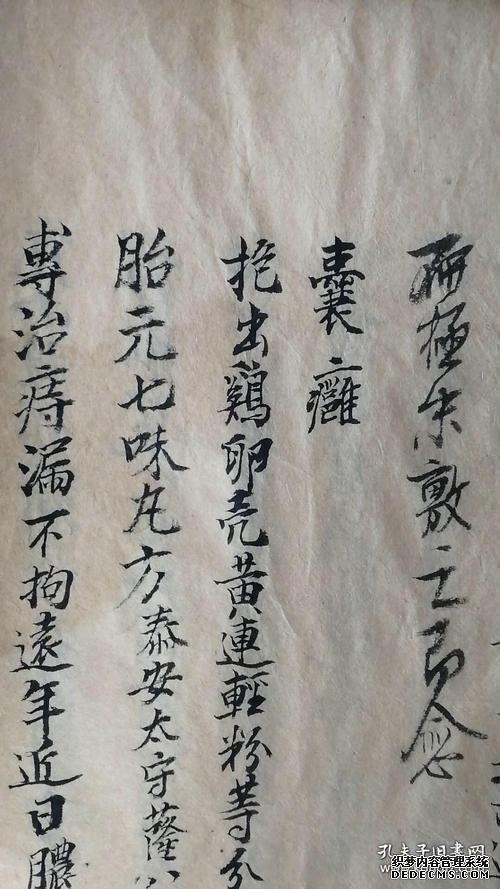 研極末敷之即愈
囊癰
抱出鷄卵壳黃連輕粉等分
胎元七味丸方 泰安太守
專治痔漏不拘遠年近日膿
孔夫子旧書网
织梦内容管理系统
DEDECMS.COM